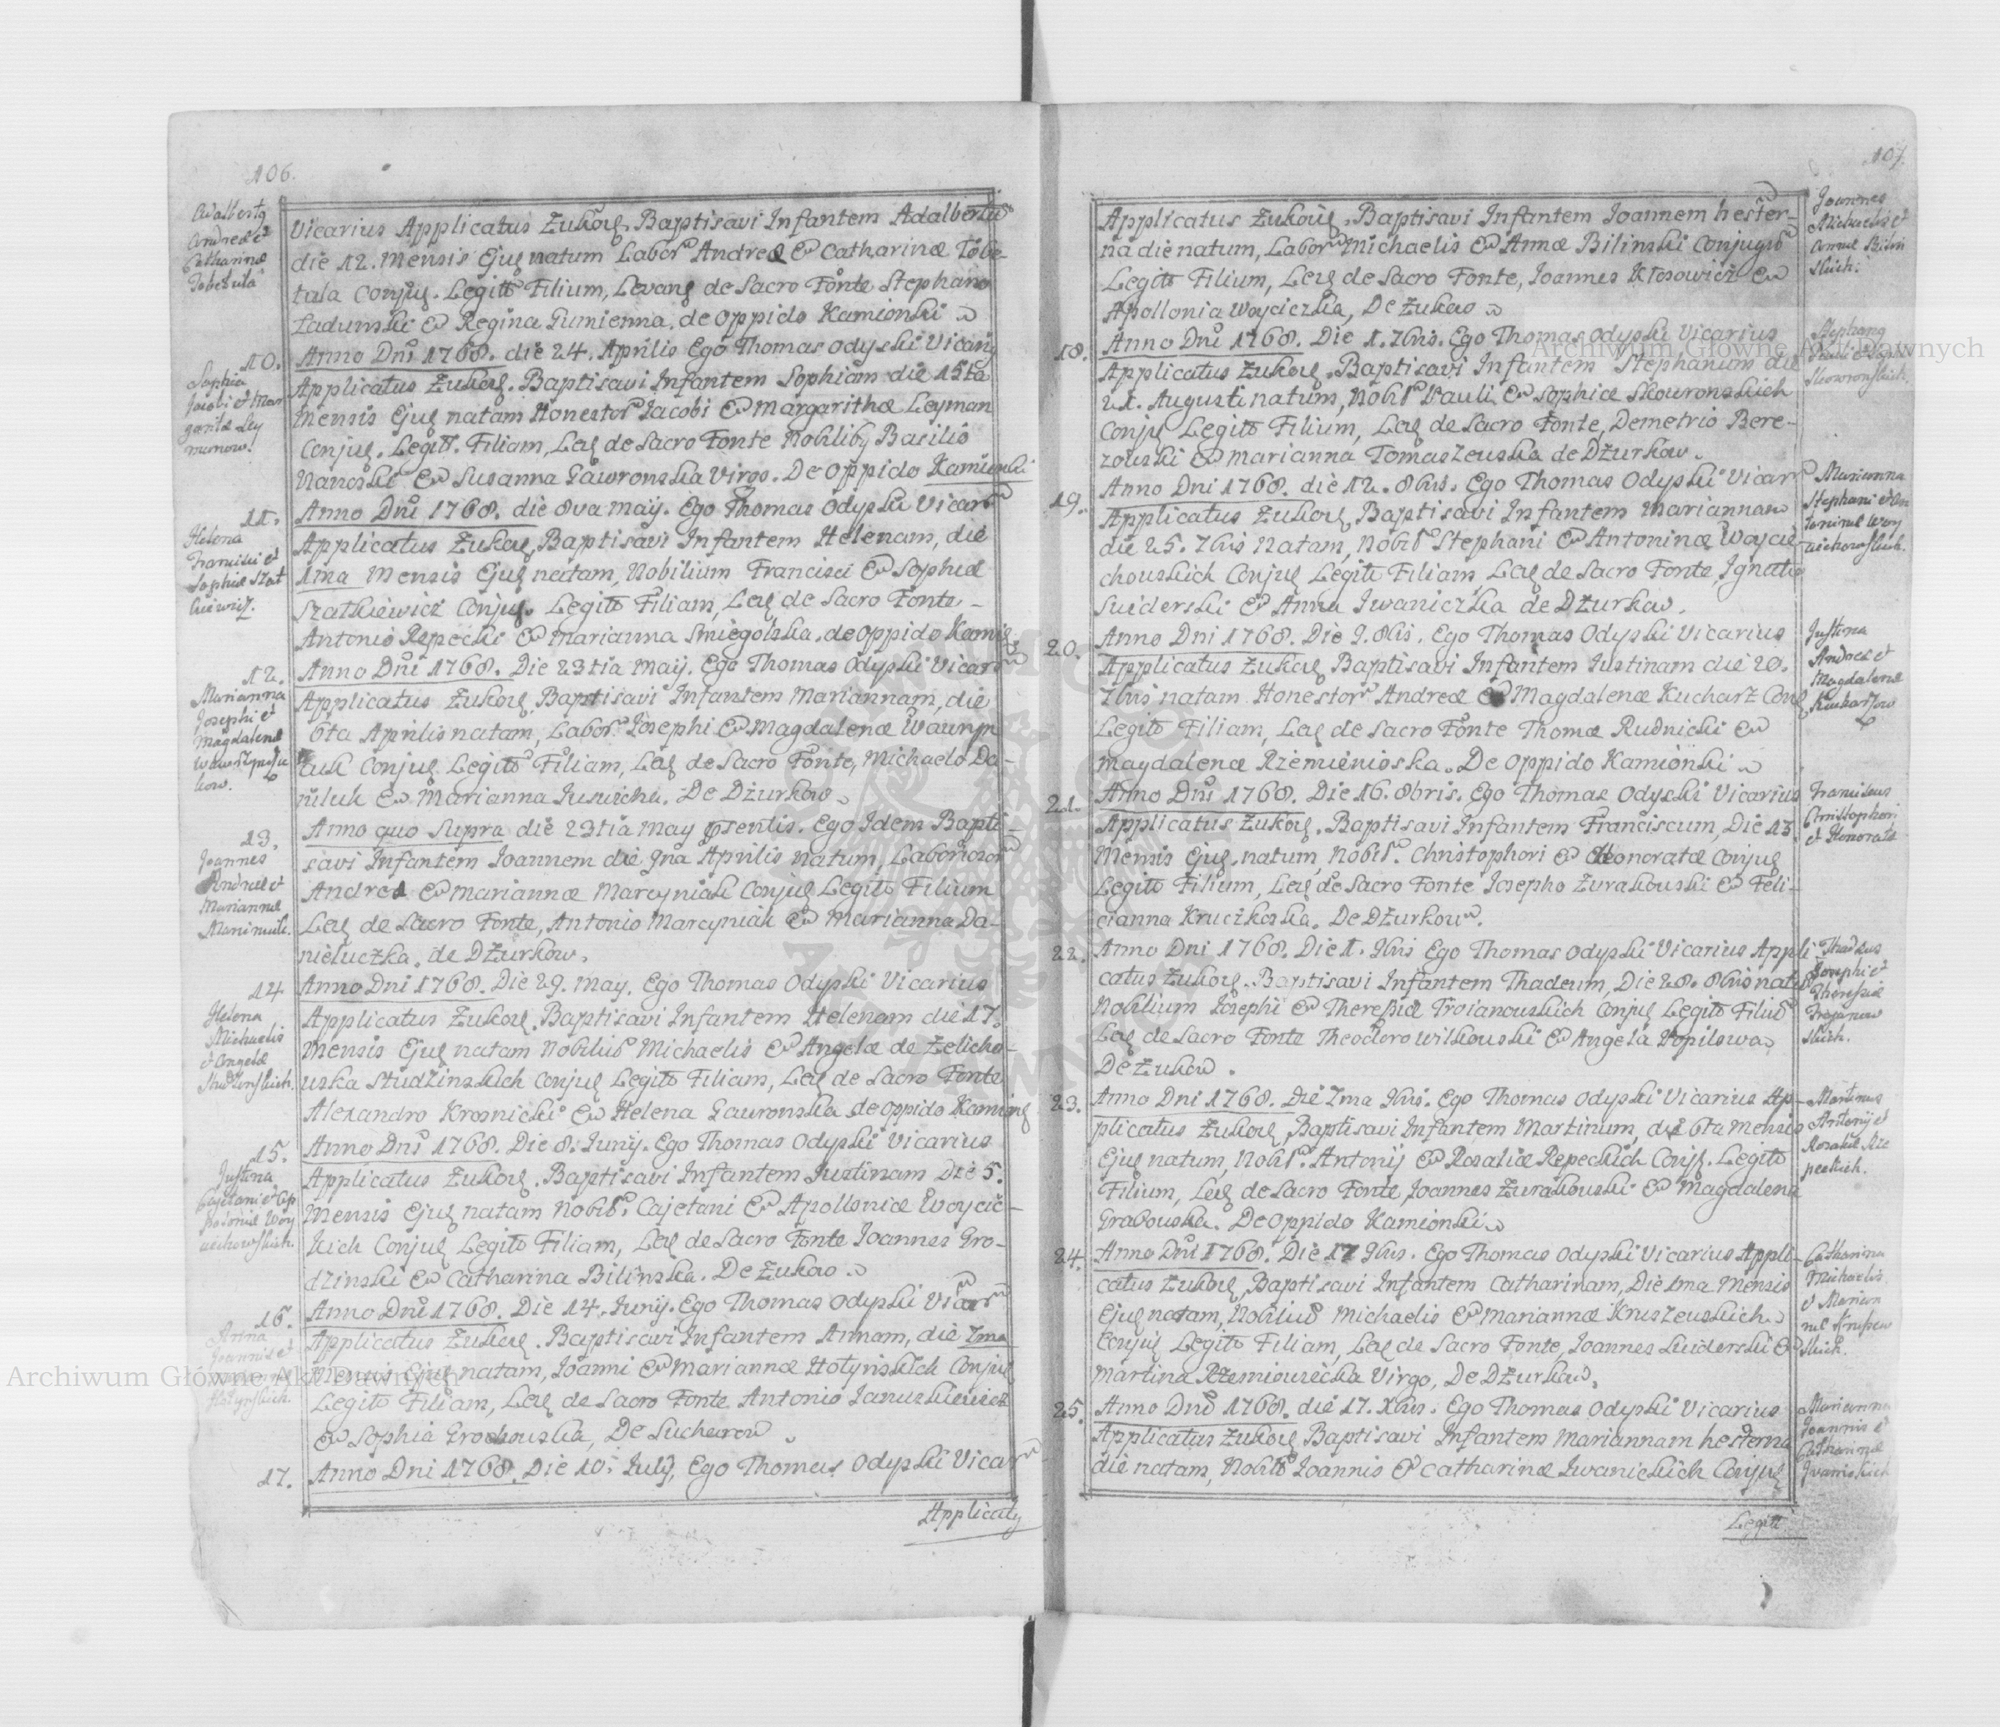 106.
Adalbertq
Andreæ et
Catharinæ
Tobetula
Vicarius Applicatus Żukow. Baptisavi Infantem Adalbertum
die 12. Mensis Ejus natum Labor. Andreæ & Catharinæ Tobe-
tula Conjug. Legit. Filium, Levang de Sacro Fonte Stephano
Ładunski & Regina Gumienna. de Oppido Kamionki
10.
Sophia
Jacobi et Mar
garitæ Ley
manow.
Anno Dni 1768. die 24. Aprilis Ego Thomas Odyski Vicariq
Applicatus Żukow. Baptisavi Infantem Sophiam die 15ta
Mensis Ejus natam Honestor. Jacobi & Margarithæ Leyman
Conjug. Legit. Filiam, Lev de Sacro Fonte Nobiliby Basilio
& Susanna Gawronska Virgo. De Oppido Kamionki
11.
Helena
Francisci et
Sophiæ Szat
kiewicz.
Anno Dni 1768. die 8va May. Ego Thomas Odyski Vicar
Applicatus Żukow Baptisavi Infantem Helenam, die
1ma Mensis Ejus natam, Nobilium Francisci & Sophiæ
Szatkiewicz Conjug. Legit Filiam, Lev de Sacro Fonte
Antonio Repecki & Marianna Smiegolska. de Oppido Kamio
12.
Marianna
Josephi et
Magdalenæ
Anno Dni 1768. Die 23tia May. Ego Thomas Odyski Vicar
Applicatus Żukow. Baptisavi Infantem Mariannam, die
6ta Aprilis natam, Labor. Josephi & Magdalenæ Wawrzyn
Conjug. Legit Filiam, Lev de Sacro Fonte, Michaelo Da-
niluk & Marianna. De Dżurkow
13.
Joannes
Andreæ et
Mariannæ
Anno quo Supra die 23tia May prsentis. Ego Idem Bapti-
savi Infantem Joannem die 9na Aprilis natum, Laborioso
Andreæ & Mariannæ Marcyniak Conjug Legit Filium
Lev de Sacro Fonte, Antonio Marcyniak & Marianna Da-
nieluczka. de Dżurkow,
14
Helena
Michaelis
et Angelæ
Studzinskich.
Anno Dni 1768. Die 29. May. Ego Thomas Odyski Vicarius
Applicatus Żukow. Baptisavi Infantem Helenam die 17.
Mensis Ejus natam Nobiliu Michaelis & Angelæ de Zelicho-
wska Studzinskich Conjug Legit Filiam, Lev de Sacro Fonte
Alexandro Krosnicki & Helena Gawronska de Oppido Kaming
15.
Justina
Cajetani et Ap
poloniæ Woy
Anno Dni 1768. Die 8. Junij. Ego Thomas Odyski Vicarius
Applicatus Żukow. Baptisavi Infantem Justinam Die 5.
Mensis Ejus natam Nobil. Cajetani & Apolloniæ Woycic-
kich Conjug Legit Filiam, Lev de Sacro Fonte Joannes Gro-
dzinski & Catharina Bilinska. De Żukow
16.
Anna
Joannis et
Hołynskich.
Anno Dni 1768. Die 14. Junij. Ego Thomas Odyski Vicar
Applicatus Żukow. Baptisavi Infantem Annam, die 7ma
Mensis Ejus natam, Joanni & Mariannæ Hołynskich Conjug
Legit Filiam, Lev de Sacro Fonte Antonio Januszkiewicz
& Sophia Grochowska, De Sucharow
17.
Anno Dni 1768. Die 10. Julij, Ego Thomas Odyski Vicar
Applicatq
107.
Joannes
Michaelis et
Annæ Bilin
skich.
Applicatus Żukow. Baptisavi Infantem Joannem hester-
na die natum, Labor Michaelis & Annæ Bilinski Conjug
Legit Filium, Lev de Sacro Fonte, Joannes Kłosowicz &
Apollonia Woyciczka, De Żukow
18.
Stephang
Pauli et Sop
Skowronskich.
Anno Dni 1768. Die 1. 7bris. Ego Thomas Odyski Vicarius
Applicatus Żukow. Baptisavi Infantem Stephanum die
21. Augusti natum, Nobil Pauli & Sophiæ Skowronskich
Conjug Legit Filium, Lev de Sacro Fonte, Demetrio Bere-
zowski & Marianna Tomaszewska de Dżurkow.
19.
Marianna
Stephani et An
toninæ Woy
ciechowskich.
Anno Dni 1768. die 12. 8bris. Ego Thomas Odyski Vicar
Applicatus Żukow Baptisavi Infantem Mariannam
die 25. 7bris Natam, Nobil Stephani & Antoninæ Woycie-
chowskich Conjug Legit Filiam Lev de Sacro Fonte Ignatio
Swiderski & Anna Iwaniczka de Dżurkow.
20.
Justina
Andreæ et
Magdalenæ
Kucharzow
Anno Dni 1768. Die 9. 8bris. Ego Thomas Odyski Vicarius
Applicatus Żukow Baptisavi Infantem Justinam die 20.
7bris natam Honestor Andreæ & Magdalenæ Kucharz Conj
Legit Filiam, Lev de Sacro Fonte Thomæ Rudnicki &
Magdalena Rzemienioska. De Oppido Kamionki
21.
Franciscus
Christophori
et Honoratæ
Anno Dni 1768. Die 16. 8bris. Ego Thomas Odyski Vicarius
Applicatus Żukow. Baptisavi Infantem Franciscum, Die 13
Mensis Ejus natum, Nobil. Christophori & Honoratæ Conjug
Legit Filium, Lev de Sacro Fonte Josepho Żurakowski & Feli-
cianna Kruczkoska. De Dżurkow.
22.
Thadeus
Josephi et
Theressiæ
Trojanow
skich.
Anno Dni 1768. Die 1. 9bris Ego Thomas Odyski Vicarius Appli
catus Żukow. Baptisavi Infantem Thadeum, Die 28. 8bris natu
Nobilium Josephi & Theressiæ Troianowskich Conjug Legit Filiu
Lev de Sacro Fonte Theodoro Wilkowski & Angela Popilowa
De Żukow.
23.
Martinus
Antonij et
Rosaliæ Re
peckich.
Anno Dni 1768. Die 7ma 9bris. Ego Thomas Odyski Vicarius Ap-
plicatus Żukow Baptisavi Infantem Martinum, die 6ta Mensis
Ejus natum, Nobil. Antonij & Rosaliæ Repeckich Conjg. Legit
Filium, Lev de Sacro Fonte Joannes Żurakowski & Magdalena
Grabowska. De Oppido Kamionki
24.
Catharina
Michaelis
et Marian
næ Kruszew
skich.
Anno Dni 1768. Die 17 9bris. Ego Thomas Odyski Vicarius Appli-
catus Żukow Baptisavi Infantem Catharinam, Die 1ma Mensis
Ejus natam, Nobiliu Michaelis & Mariannæ Kruszewskich
Conjug Legit Filiam, Lev de Sacro Fonte, Joannes Swiderski &
Martina Rzemiowiecka Virgo, De Dżurkow,
25.
Marianna
Joannis et
Catharinæ
Iwanickich
Anno Dni 1768. die 17. Xbris. Ego Thomas Odyski Vicarius
Applicatus Żukow Baptisavi Infantem Mariannam hesterna
die natam, Nobil Joannis & Catharinæ Iwanickich Conjug
Legit
Archiwum Główne Akt Dawnych
Archiwum Główne Akt Dawnych